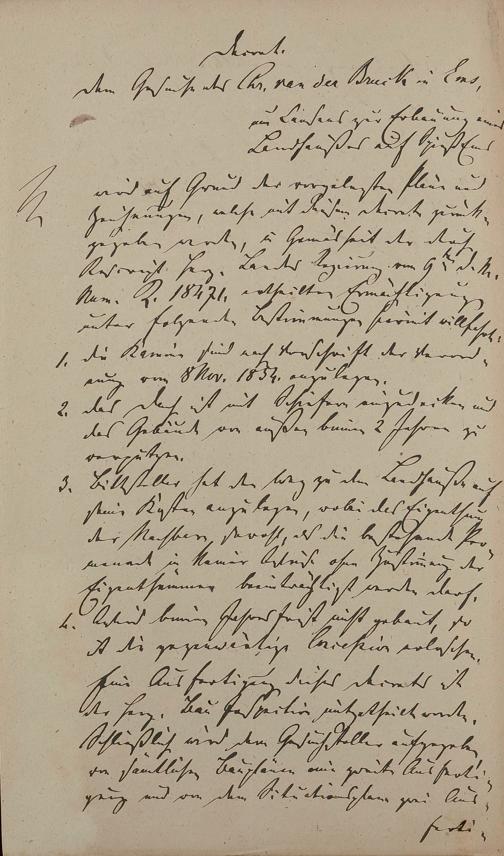 Decret.
Dem Gesuche des Chr. van der Bruck in Ems,
um Licenz zur Erbauung eines
Landhauses auf Spieß Ems
wird auf Grund der vorgelegten Pläne und
Zeichnungen, welche mit diesem Decrete zurück-
gegeben werden, in Gemäsheit der durch
Rescript Herz. Landes Regierung vom 9ten d. M.
Num. R. 18471. ertheilten Ermächtigung
unter folgenden Bestimmungen hiermit willfahrt.
1. die Kamine sind nach Vorschrift der Verord-
nung vom 8 Nov. 1834. anzulegen.
2. das Dach ist mit Schiefern einzudecken und
das Gebäude von außen binnen 2 Jahren zu
verputzen.
3. Bittsteller hat den Weg zu dem Landhause auf
seine Kosten anzulegen, wobei das Eigenthum
der Nachbarn, sowohl, als die bestehende Pro-
menade in keiner Weise ohne Zustimmung der
Eigenthümer beeinträchtigt werden darf.
4. Wird binnen Jahresfrist nicht gebaut, so
ist die gegenwärtige Concession erloschen.
Eine Ausfertigung dieses Decretes ist
der Herz. Bau Inspection mitgetheilt worden.
Schließlich wird dem Gesuchsteller aufgegeben,
von sämtlichen Bauplänen eine zweite Ausferti-
gung und von dem Situationsplane zwei Aus-
ferti-